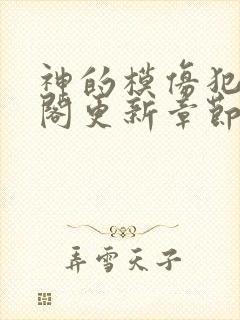 神的模傷犯
閣更新章節
弄雪天子